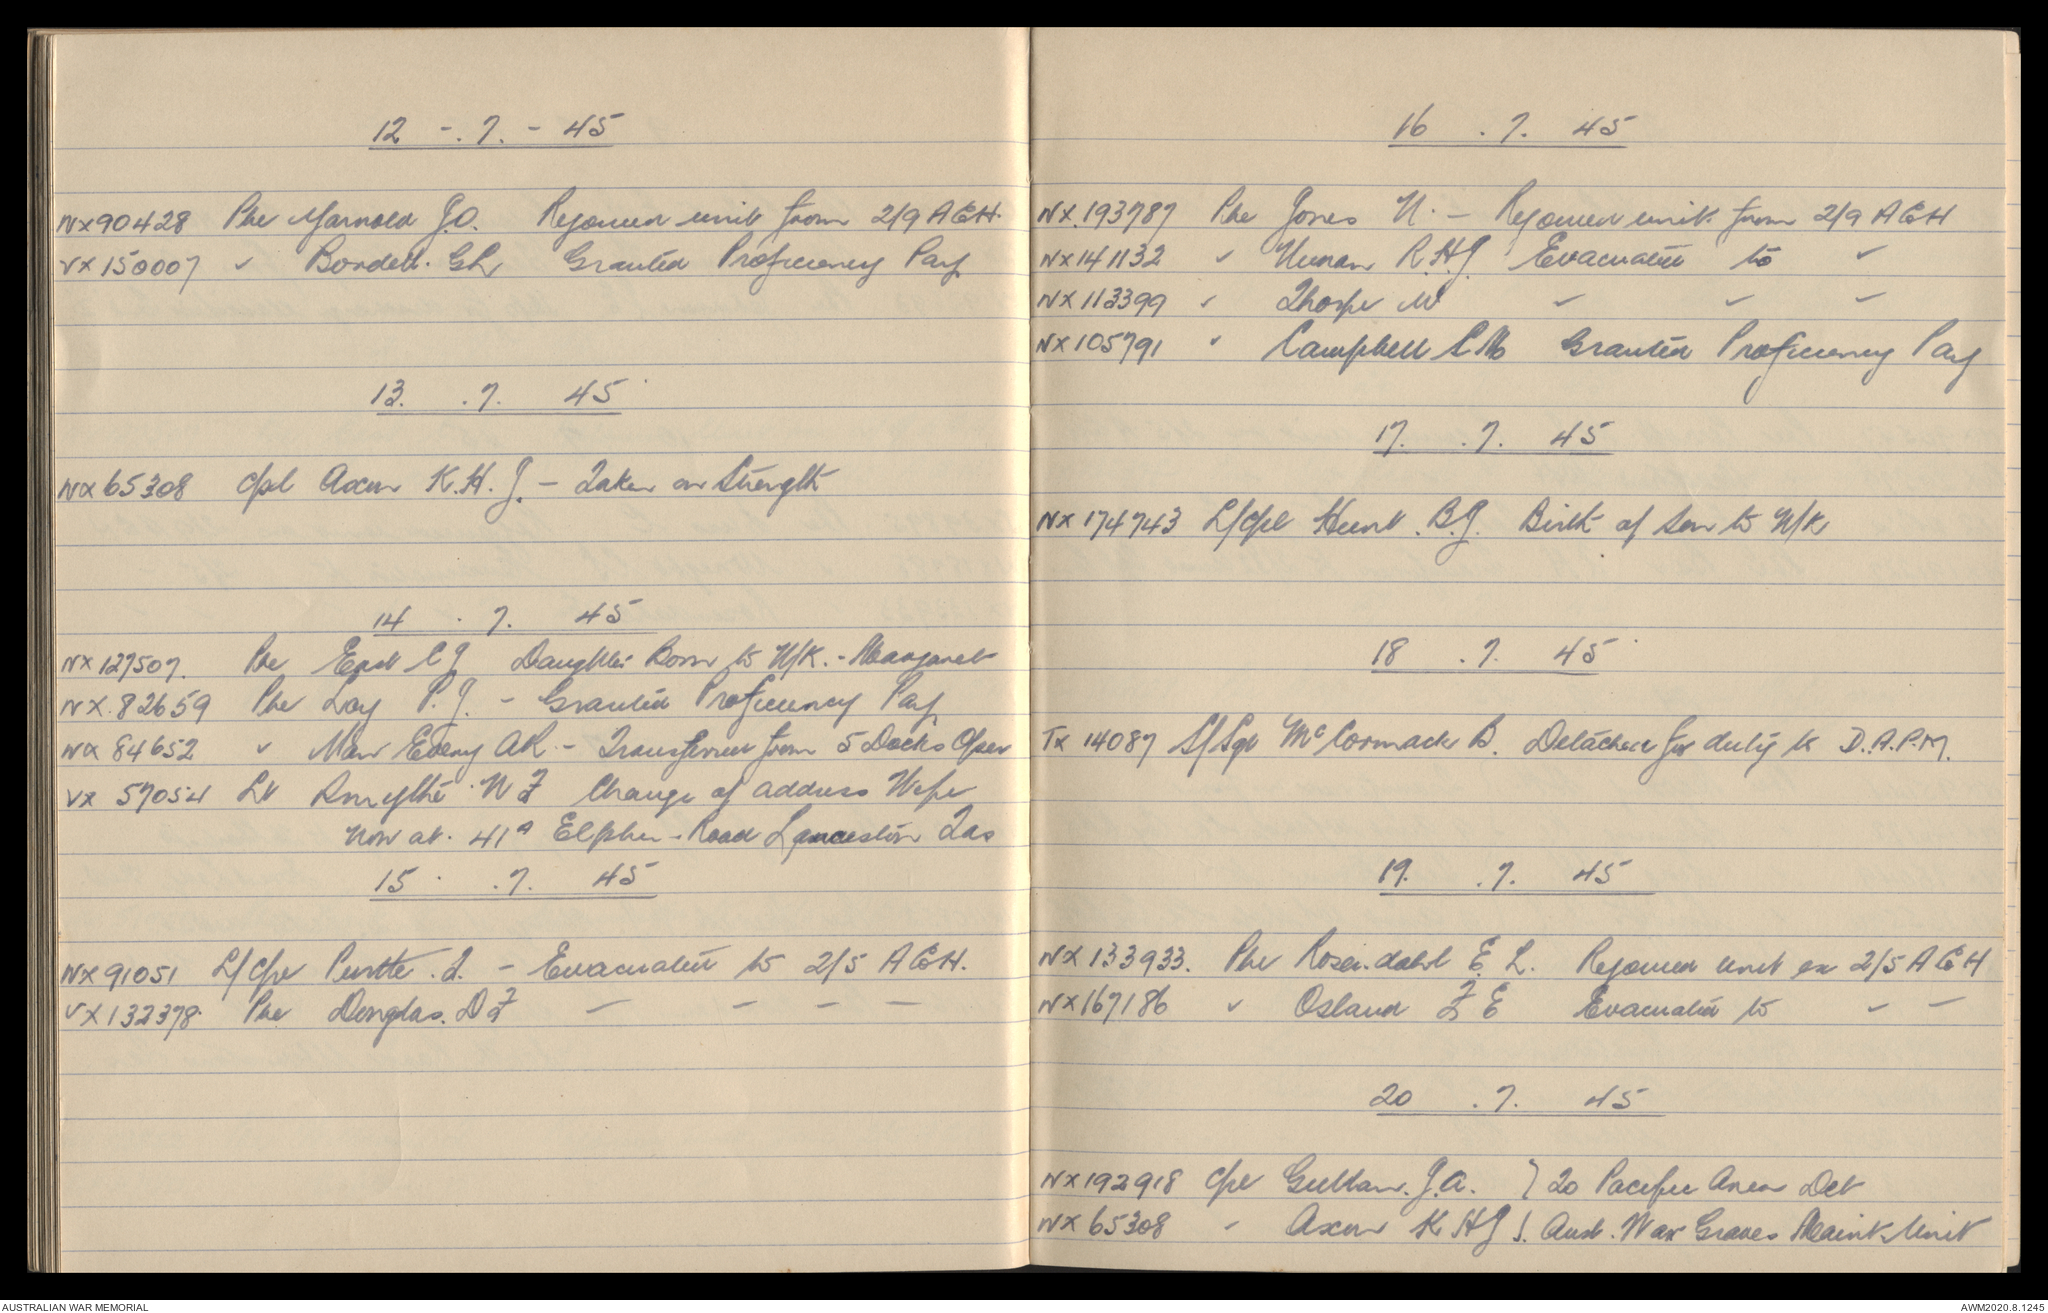 12 -. 7. - 45
NX90428 Pte Marnold J.O. Rejoined unit from 2/9 AGH.
VX150007 " Bordell. GL Granted Proficiency Pay
13. . 7. 45
NX65308 Cpl Axum K.H.J. - Taken on Strength
14 . 7. 45
NX127507. Pte East C J Daughter Born to N/K. - Margaret
NX.82659 Pte Loy P.J. - Granted Proficiency Pay
NX84652 " Maw Edeny AR - Transferred from 5 Docks Oper
VX 57054 Lt N F Change of address Wife
Now at. 41A Elphin - Road Launceston Tas
15 . 7. 45
NX91051 L/Cpl . J. - Evacuated to 2/5 AGH.
VX132378. Pte Douglas. D F — — — —
16 . 7. 45
NX.193787 Pte Jones N. - Rejoined unit from 2/9 AGH
NX141132 " R.H.J Evacuated to "
NX113399 " Thorpe W " " "
NX105791 " Campbell C M Granted Proficiency Pay
17. . 7. 45
NX174743 L/Cpl Hunt . B.J. Birth of Son to N/K
18 . 7. 45
TX 14087 S/Sgt McCormack B. Detached for duty to D.A.P.M.
19. . 7. 45
NX133933. Pte Rosen.dahl E. L. Rejoined unit ex 2/5 AGH
NX167186 " Osland F E Evacuated to " —
20 . 7. 45
NX192918 Cpl Gullan. J.A. } To Pacific Area Det
NX65308 " Axum K H J }. Aust. War Graves Maint. Unit
AUSTRALIAN WAR MEMORIAL
AWM2020.8.1245